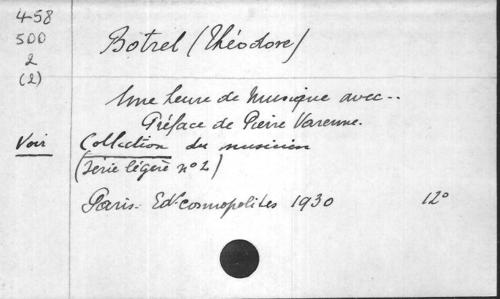 458
500
2
(2)
Botrel (Théodore)
Une heure de Musique avec..
Préface de Pierre Varenne.
Voir Collection du musicien
(Série légère nº 2)
Paris. Ed. cosmopolites 1930 12º